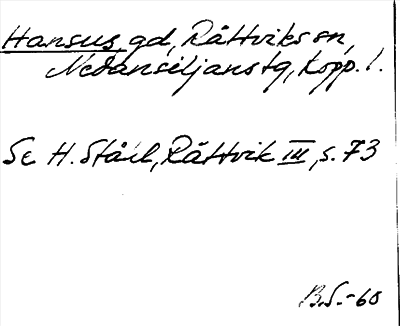 Hansus, gd, Rättviks sn,
Nedansiljans tg, Kopp. l.
Se H. Ståhl, Rättvik III, s. 73
B.S.-60